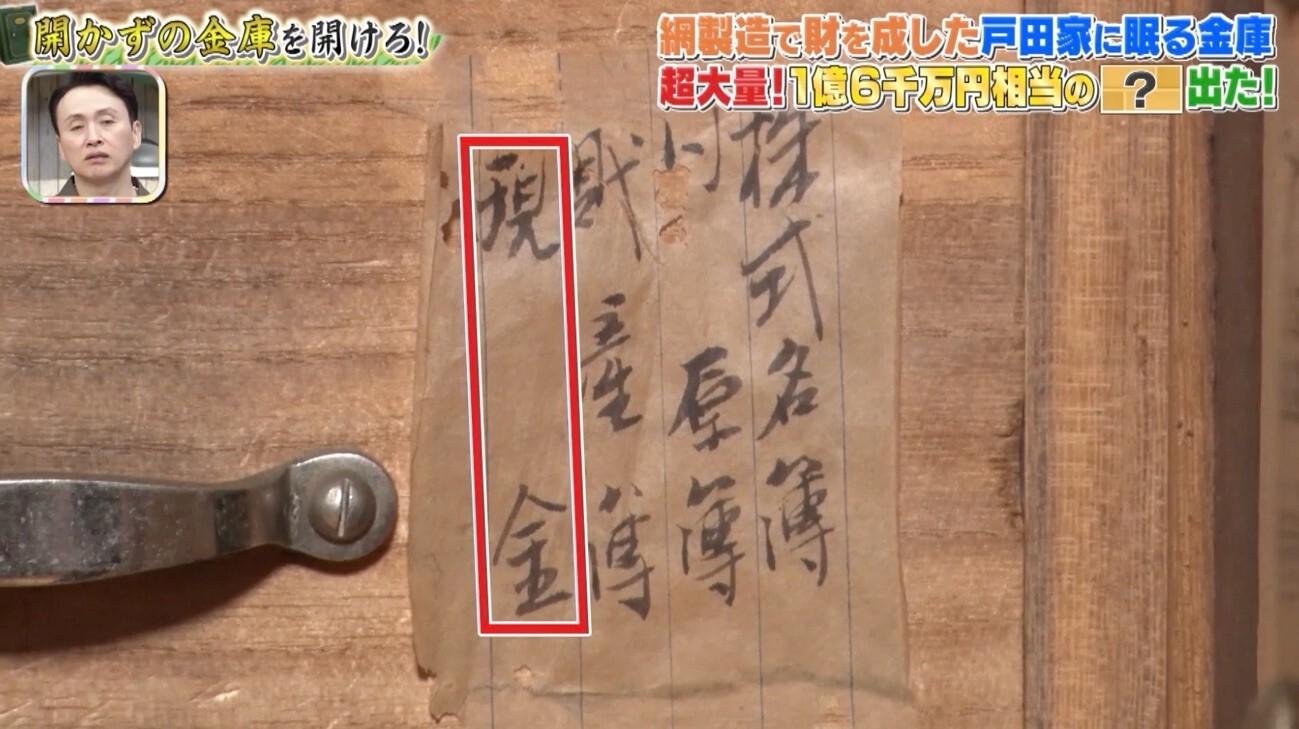 開かずの金庫を開けろ!
網製造で財を成した戸田家に眠る金庫
超大量!1億6千万円相当の ? 出た!
株式名簿
原簿
財産簿
現金